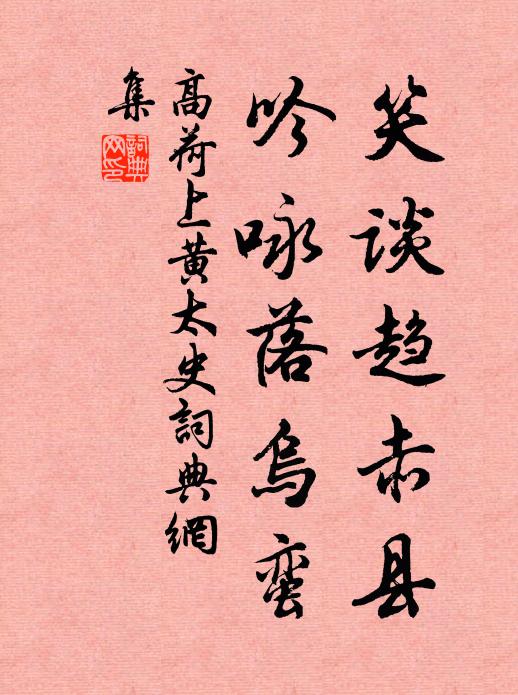 笑谈趋赤县
吟咏落乌蛮
高荷上黄太史詞典網
集
詞典
网印